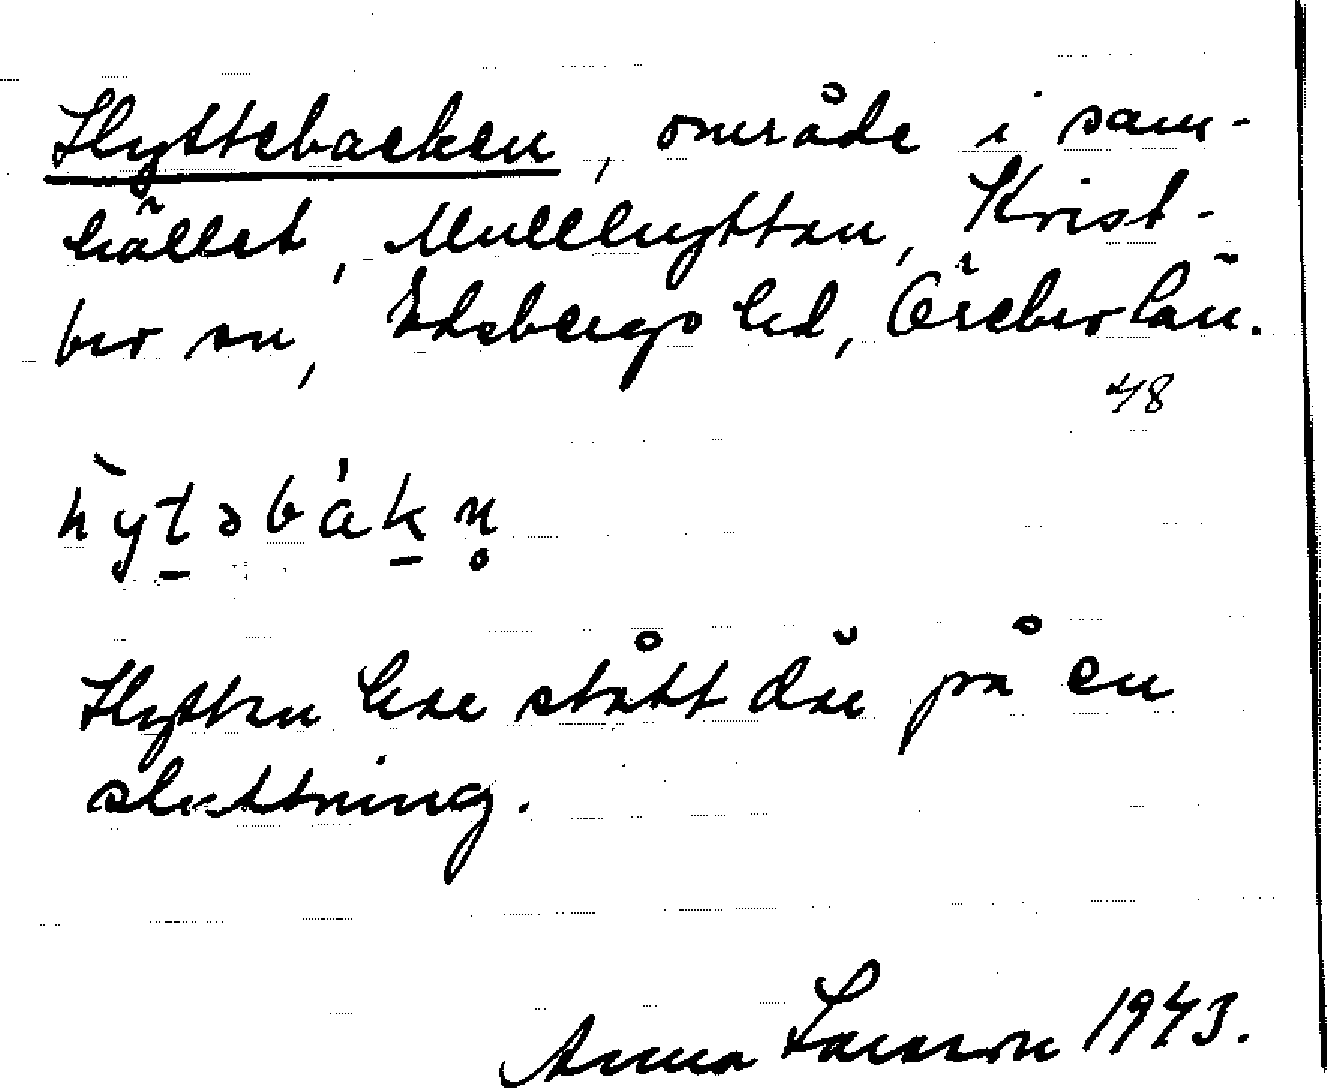 Hyttebacken, område i sam-
hället, Mullhyttan, Krist-
ber sn, Edsbergs hd, Örebro län.
48
hỳtəbákn̥
Hyttan har stått där på en
sluttning.
Anna Larsson 1943.